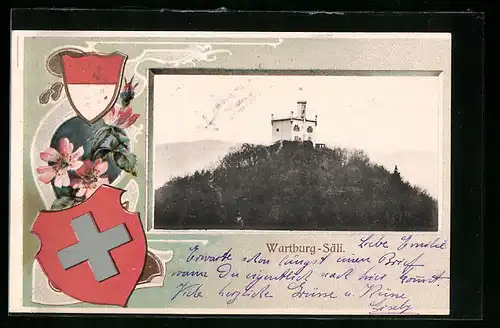 Wartburg-Säli.
Liebe Emilie
Erwarte schon längst einen Brief
wann Du eigentlich nach hier kommst.
Viele herzliche Grüsse u. Küsse
Lisely